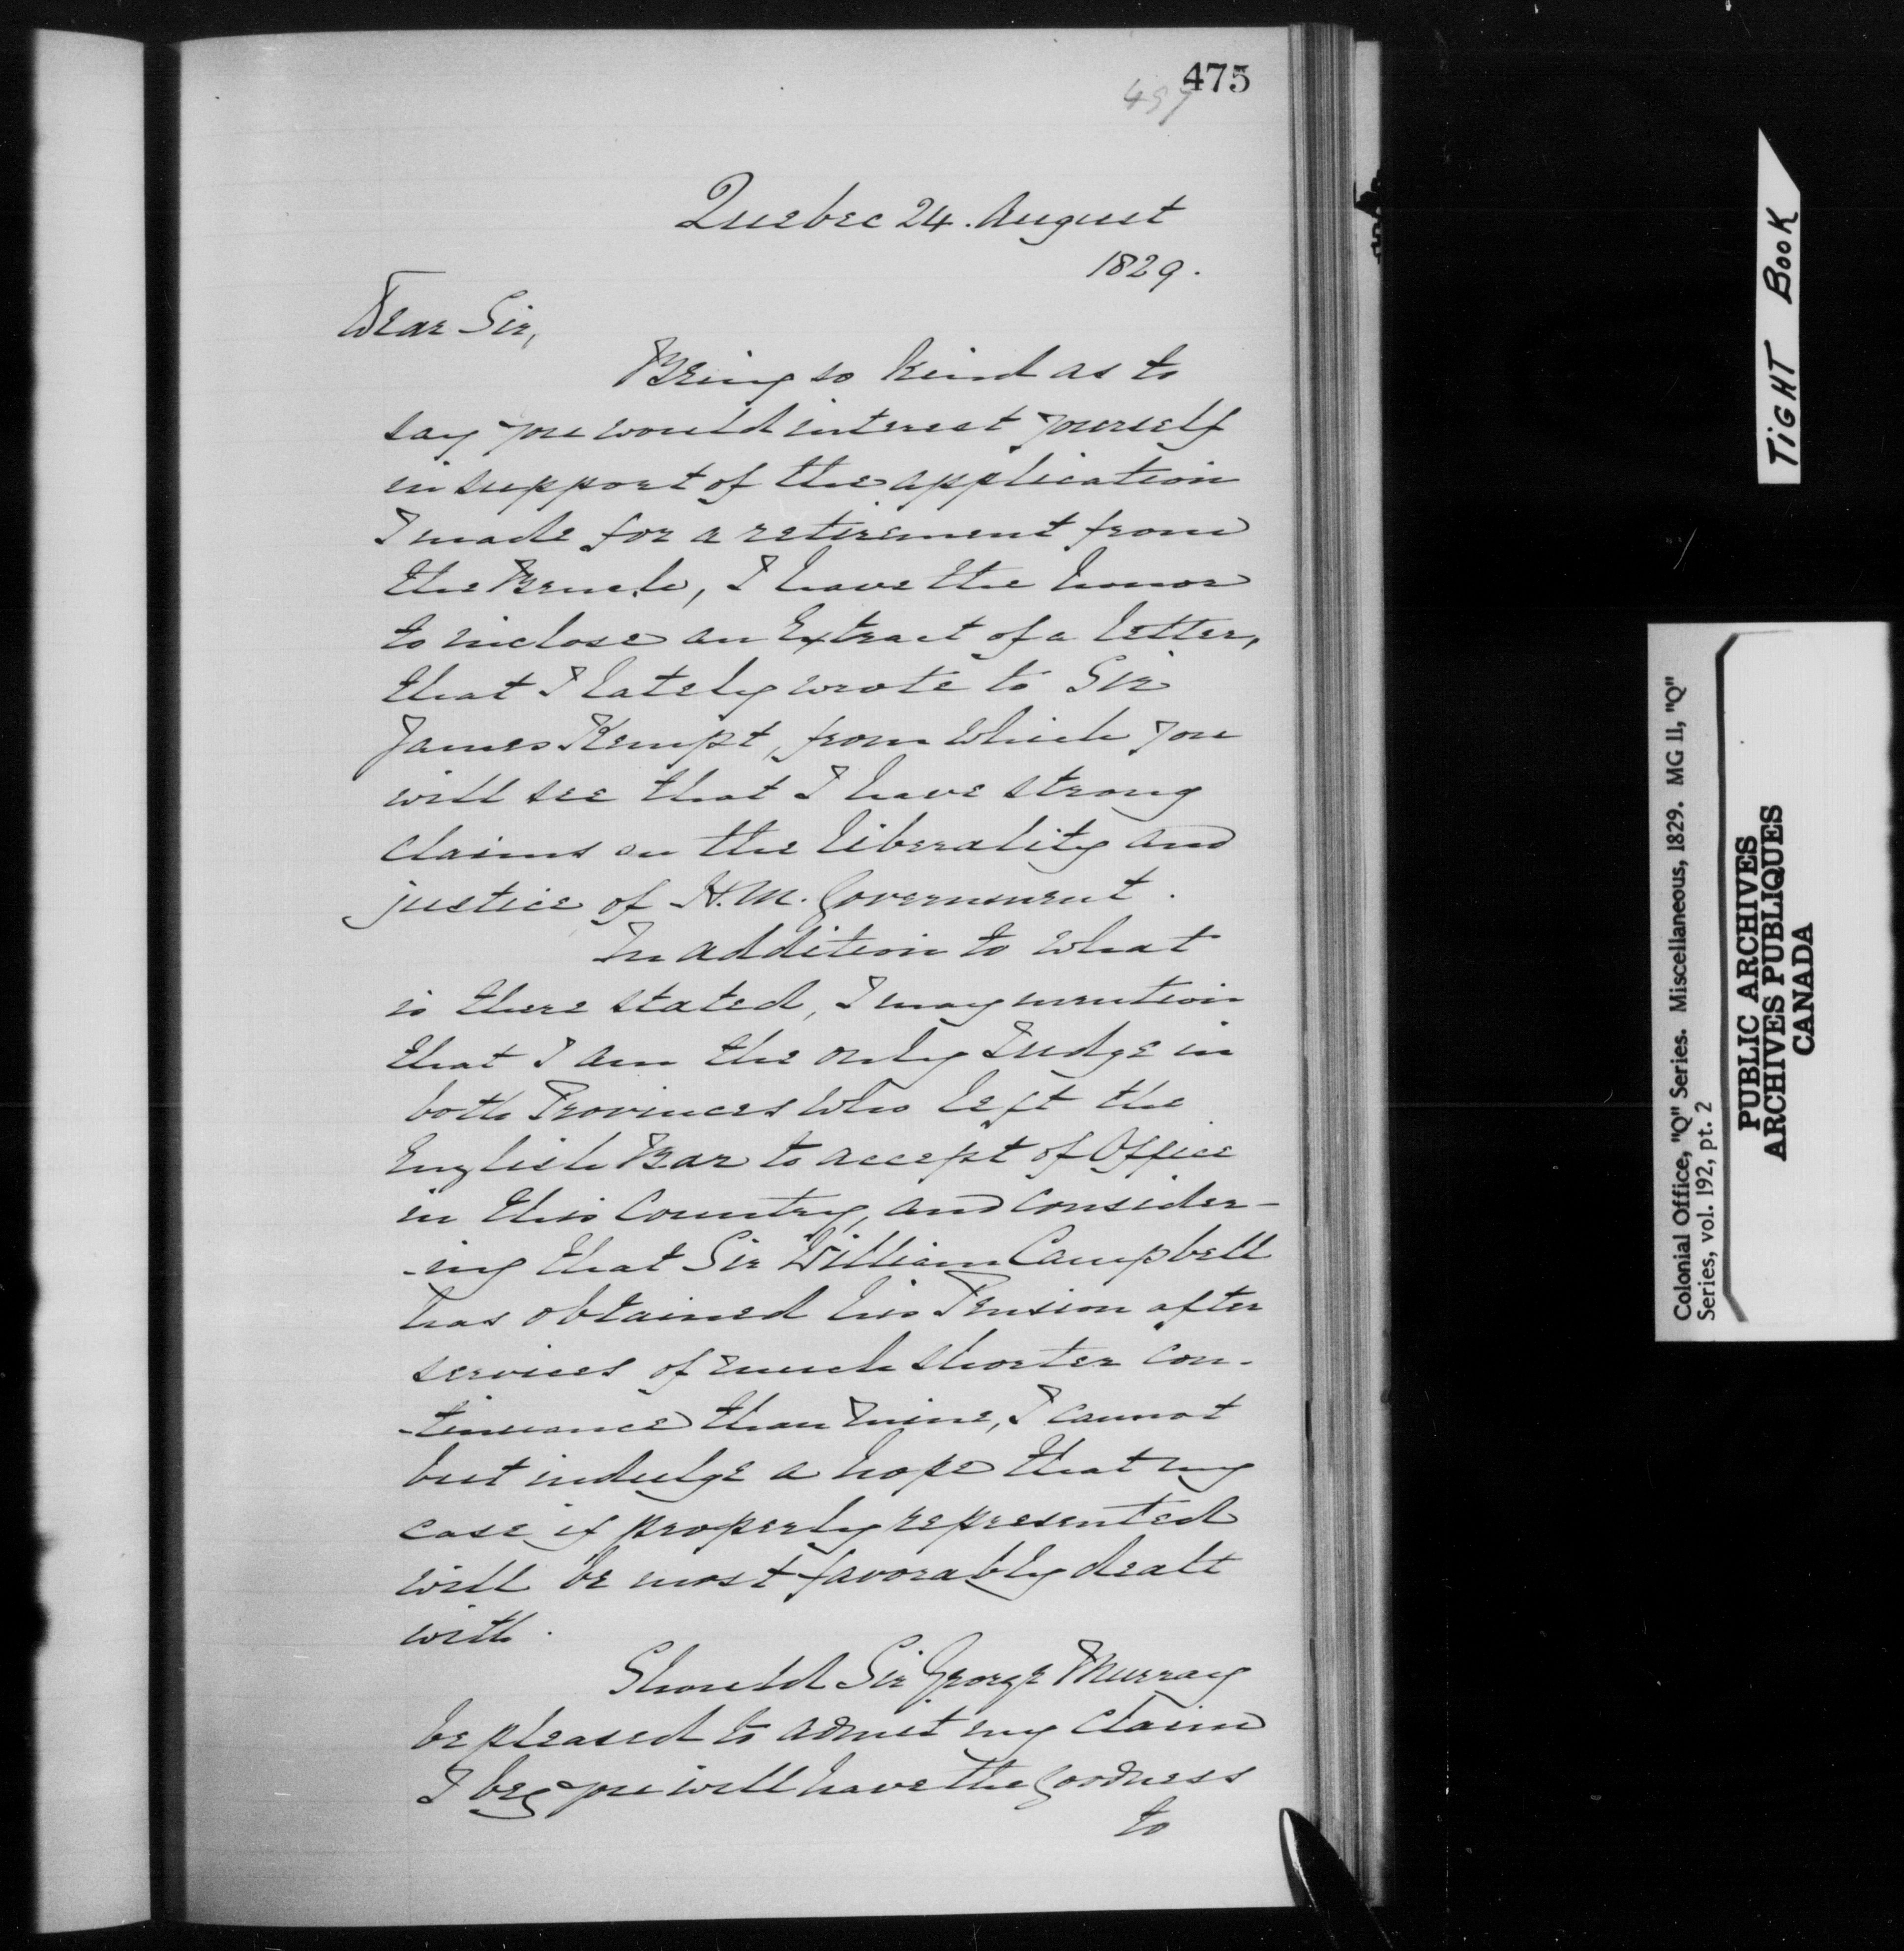 475
Quebec 24. August
1829.
Dear Sir,
Being so kind as to
say you would interest yourself
in support of the application
I made for a retirement from
the Bench, I have the honor
to inclose an Extract of a letter,
that I lately wrote to Sir
James Kempt, from which you
will see that I have strong
claims on the liberality and
justice of H.M. Government.
In addition to what
is there stated, I may mention
that I am the only Judge in
both Provinces who left the
English Bar to accept of Office
in this Country, and consider-
-ing that Sir William Campbell
has obtained his Pension after
services of much shorter con-
-tinuance than mine, I cannot
but indulge a hope that my
case if properly represented
will be most favorably dealt
with.
Should Sir George Murray
be pleased to admit my claim
I beg you will have the goodness
to
TIGHT BOOK
Colonial Office, "Q" Series. Miscellaneous, 1829. MG 11, "Q"
Series, vol. 192, pt. 2
PUBLIC ARCHIVES
ARCHIVES PUBLIQUES
CANADA